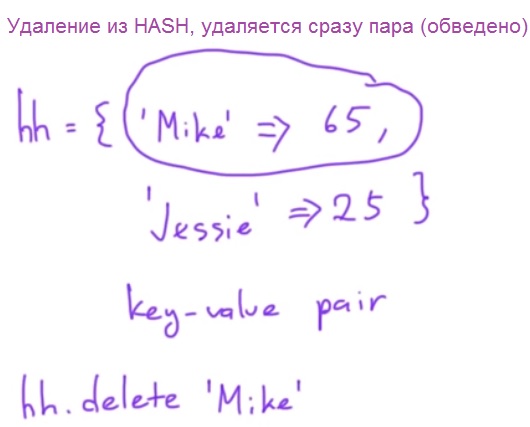 Удаление из HASH, удаляется сразу пара (обведено)
hh = { 'Mike' => 65,
'Jessie' => 25 }
key-value pair
hh.delete 'Mike'